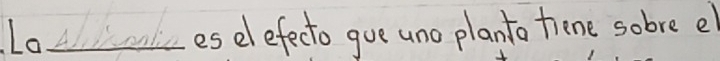 La ________ es el efecto que una planta tiene sobre el